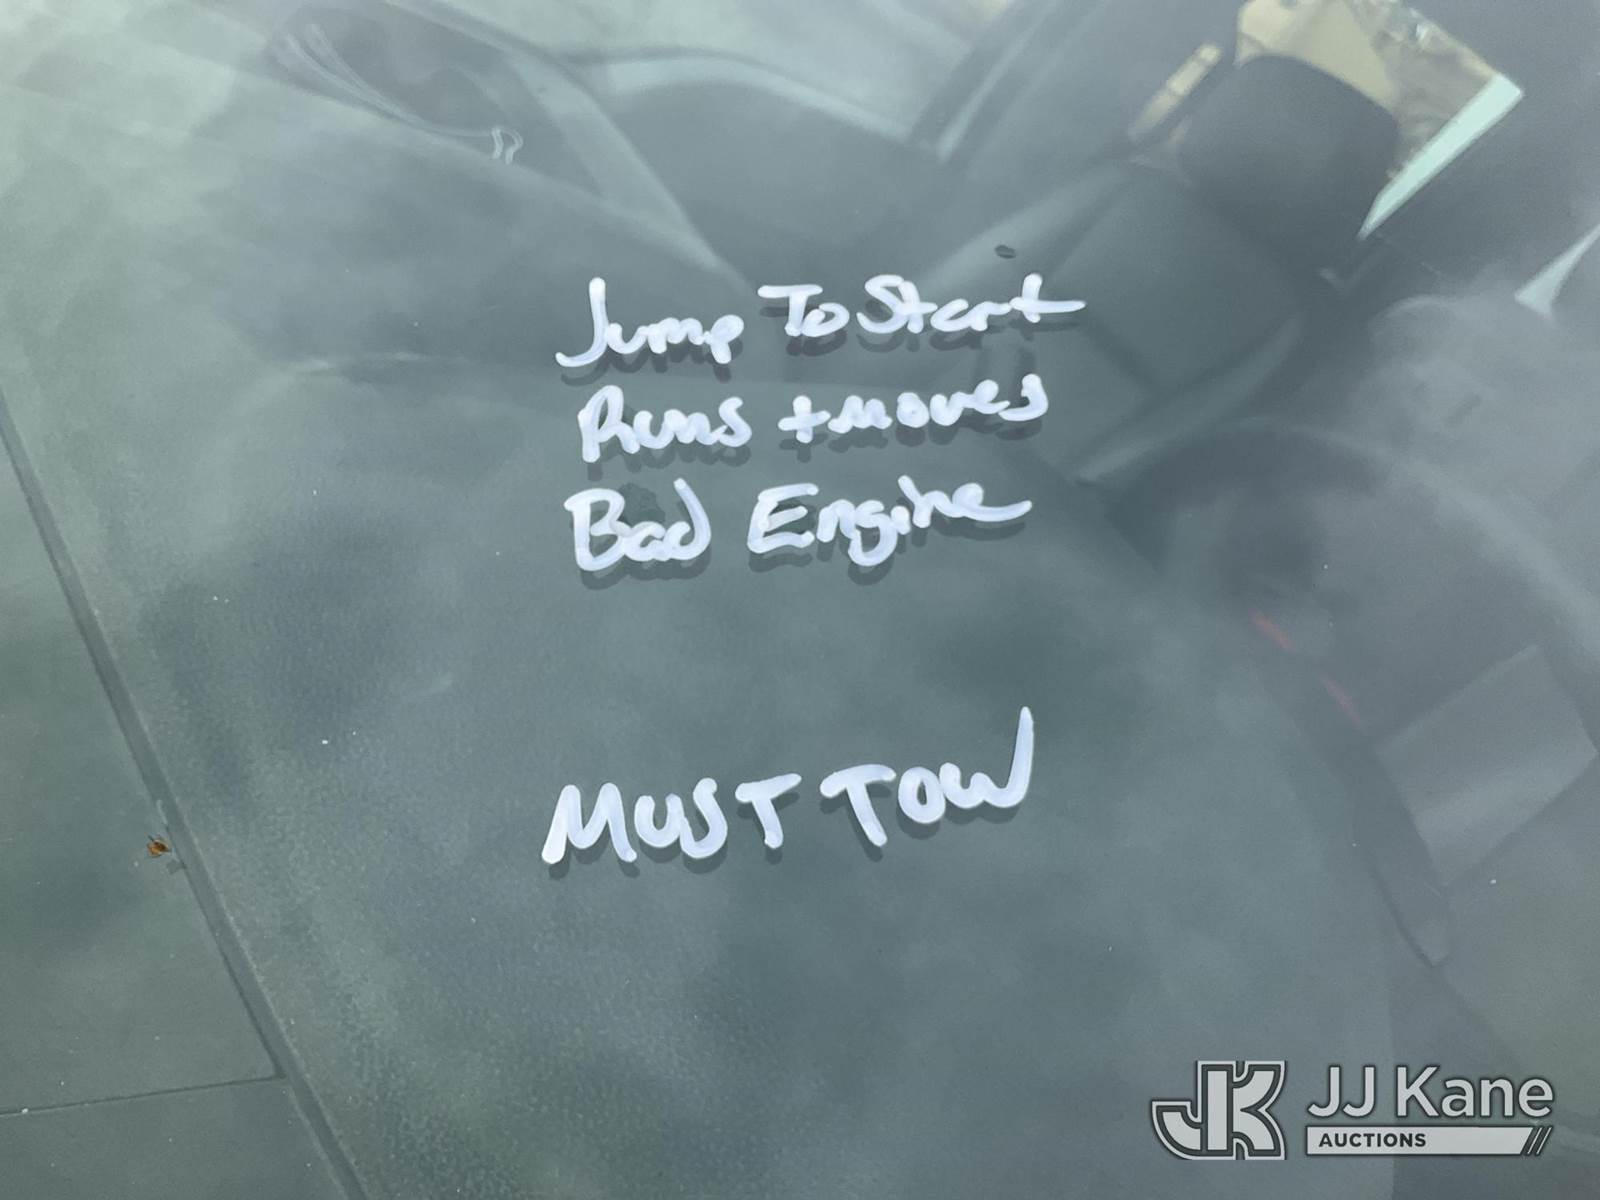 Jump To Start
Runs + moves
Bad Engine
MUST TOW
JK JJ Kane
AUCTIONS